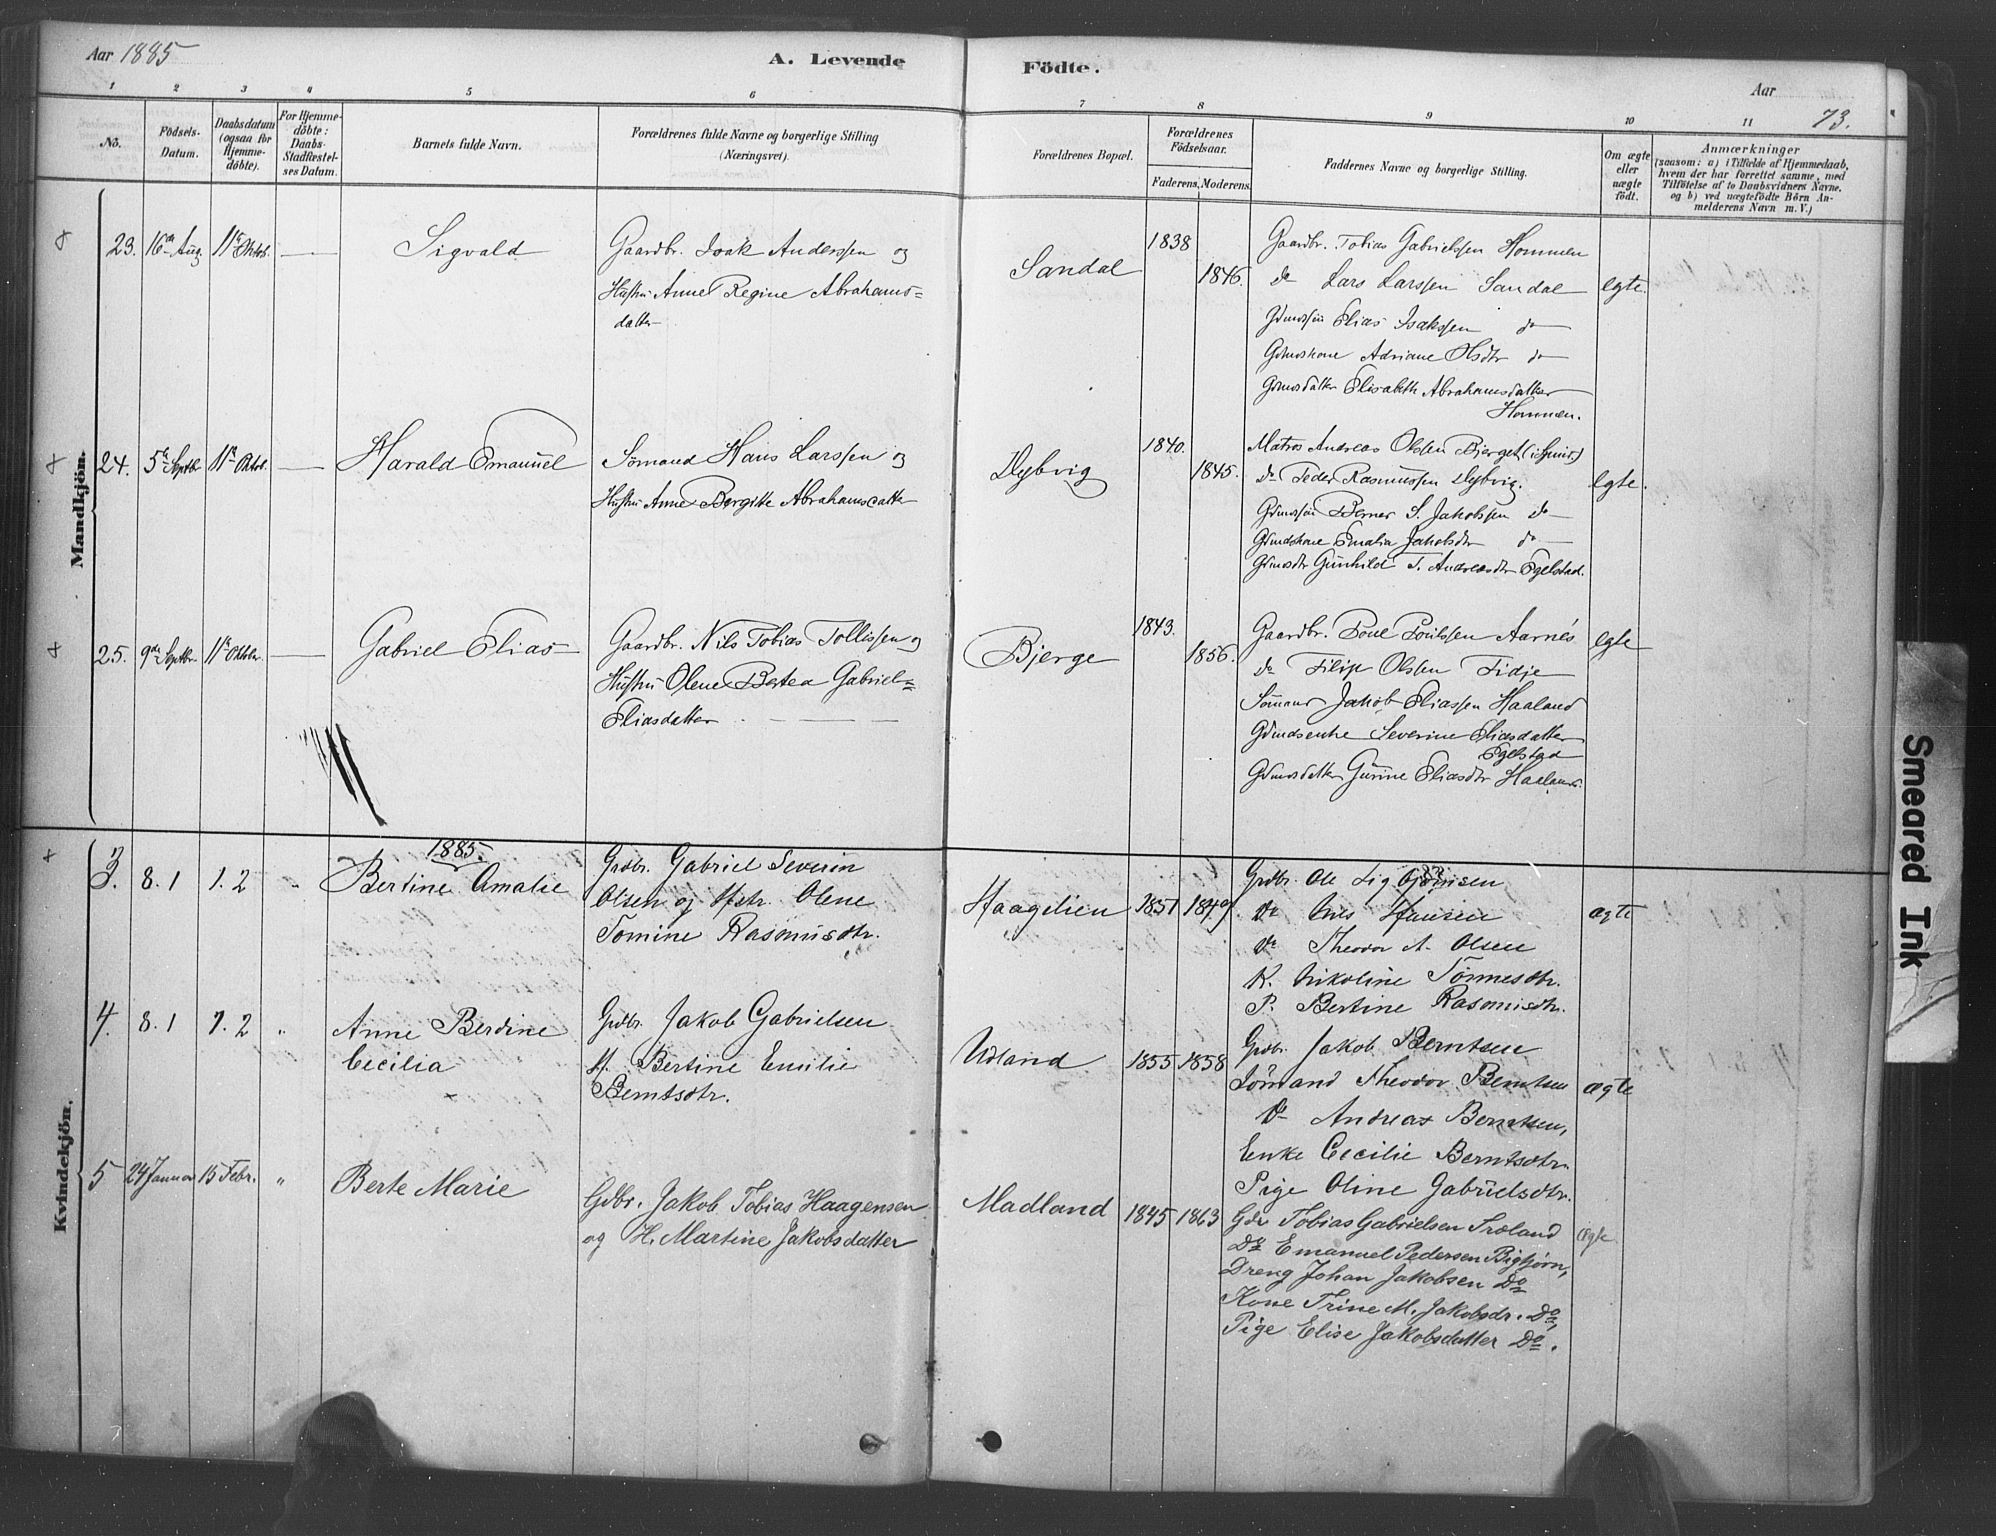 Aar 1885
A. Levende
Födte.
Aar
73.
1 2 3 4 5 6 7 8 9 10 11
No.
Födsels-
Datum.
Daabsdatum
(ogsaa for
Hjemme-
döbte).
For Hjemme-
döbte:
Daabs-
Stadfæstel-
ses Datum.
Barnets fulde Navn.
Forældrenes fulde Navne og borgerlige Stilling
(Næringsvei).
Forældrenes Bopæl.
Forældrenes
Födselsaar.
Faderens, Moderens.
Faddernes Navne og borgerlige Stilling.
Om ægte
eller
uægte
født.
Anmærkninger
(saasom: a) i Tilfælde af Hjemmedaab,
hvem der har forrettet samme, med
Tilföielse af to Daabsvidners Navne.
og b) ved uægtefödte Börn An-
melderens Navn m. V.)
Mandkjön.
23. 16de Aug. 11te Oktob.
Sigvald
Gaardbr. Isak Anderssen og
Hustru Anne Regine Abrahams=
datter
Sandal
1838
1846.
Gaardbr. Tobias Gabrielssen Hommen
do Lars Larssen Sandal
Gdmdssön Elias Isakssen do
Gdmdskone Adriane Olsdtr do
Gdmdsdatter Elisabeth Abrahamsdatter
Hommen.
Egte.
24. 5te Septbr 11te Oktob.
Harald Emanuel
Sømand Hans Larssen og
Hustru Anne Bergitte Abrahamsdatter
Dybvig
1840.
1845.
Matros Andreas Olsen Bjerget
do Peder Rasmussen Dybvig.
Gdmdssön Berner S. Jakobssen do
Gdmdskone Emalia Jakobsdtr do
Gdmdsdtr Gunhild T. Andreasdtr Egelstad.
Egte.
25. 9de Septbr. 11te Oktobr.
Gabriel Elias
Gaardbr. Nils Tobias Tollissen og
Hustru Olene Bertea Gabriel=
Eliasdatter
Bjerge
1843.
1856.
Gaardbr. Poul Poulssen Aarnés
do Filip Olssen Fidje
Sömand Jakob Eliassen Haaland
Gdmdsenke Severine Eliasdatter
Egelstad
Gdmdsdatter Gurine Eliasdtr Haaland.
Egte
Kvindekjön.
1885.
3. 8.1 1.2 "
Bertine Amalie
Grdbr. Gabriel Severin
Olsen og Hstr. Olene
Tomine Rasmusdtr.
Haagelien
1851 1849.
Grdbr. Ole
do Nils Hansen
do Theodor A. Olsen
K. Nikoline Tönnesdtr.
P. Bertine Rasmusdtr.
ægte
4. 8.1 1.2 "
Anne Berdine
Cecilia
Grdbr. Jakob Gabrielsen
H. Bertine Emilie
Berntsdtr.
Udland
1855 1858
Grdbr. Jakob Berntsen
Sömand Theodor Berntsen
do Andreas Berntsen,
Enke Cecilie Berntsdtr.
Pige Oline Gabrielsdtr.
ægte
5 24 Januar 15 Febr. "
Berte Marie
Gdbr. Jakob Tobias Haagensen
og H. Martine Jakobsdatter
Madland
1845 1863
Gdr Tobias Gabrielsen Træland
Do Emanuel Pedersen Bigbjørn,
Dreng Johan Jakobsen Do
Kone Trine M. Jakobsdr. Do,
Pige Elise Jakobsdatter Do.
Ægte
Smeared Ink